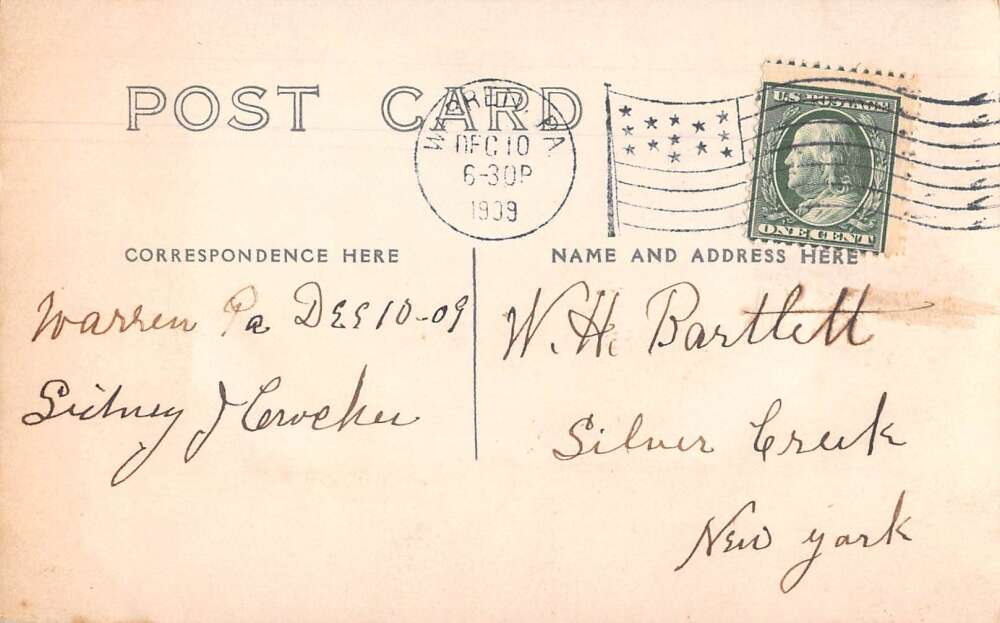 POST CARD
WARREN PA.
DEC 10
6-30P
1909
U.S. POSTAGE
ONE CENT
CORRESPONDENCE HERE
NAME AND ADDRESS HERE
Warren Pa DEC 10-09
Sidney J Crocker
W. H. Bartlett
Silver Creek
New York